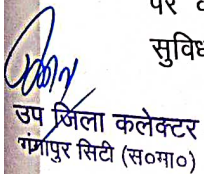 पर
सुविध
उप जिला कलेक्टर
गंगापुर सिटी (स०मा०)